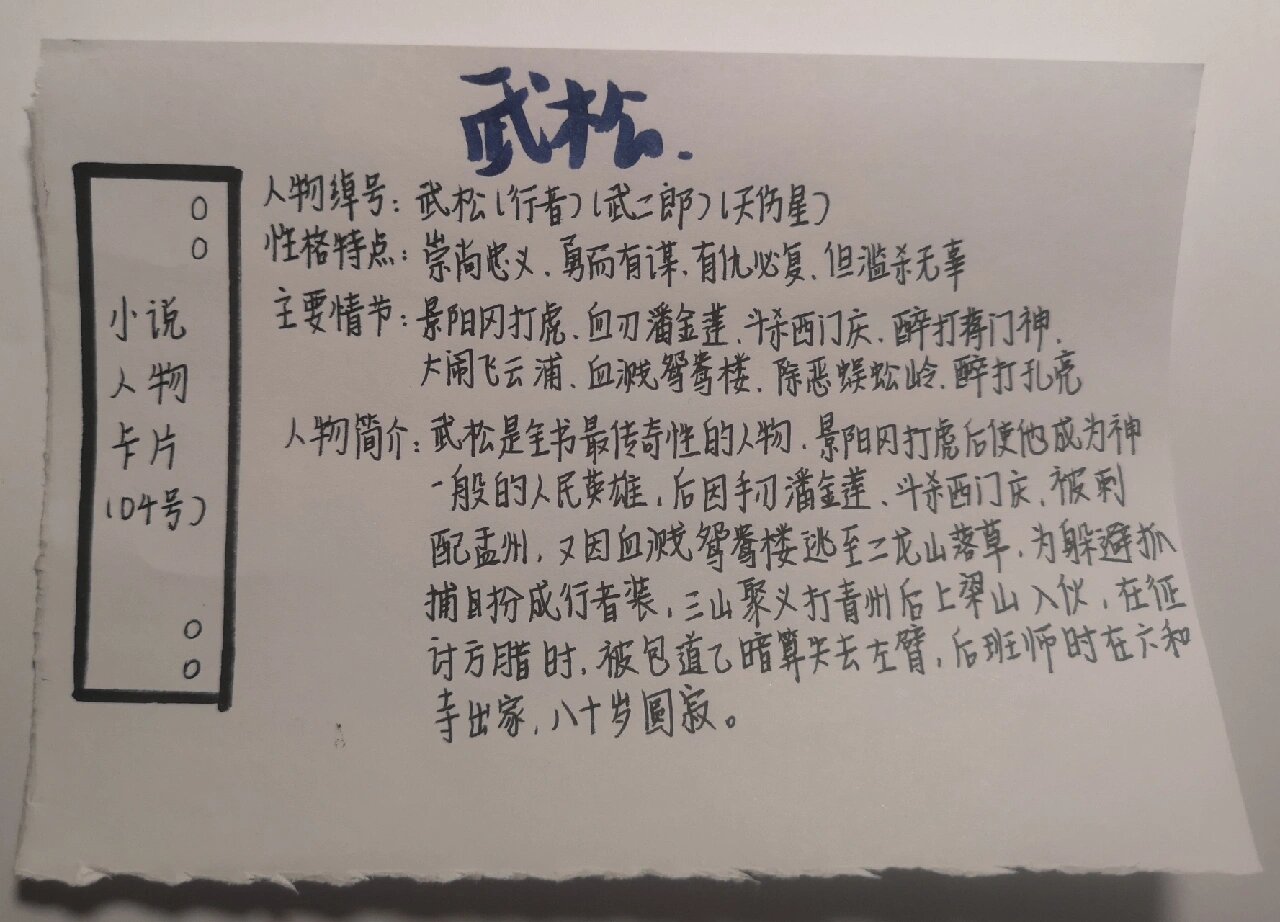 武松.
小说
人物
卡片
(04号)
人物绰号：武松(行者)(武二郎)(天伤星)
性格特点：崇尚忠义、勇而有谋、有仇必复、但滥杀无辜
主要情节：景阳冈打虎、血刃潘金莲、斗杀西门庆、醉打蒋门神、
大闹飞云浦、血溅鸳鸯楼、除恶蜈蚣岭、醉打孔亮
人物简介：武松是全书最传奇性的人物、景阳冈打虎后使他成为神
一般的人民英雄，后因手刃潘金莲、斗杀西门庆、被刺
配孟州，又因血溅鸳鸯楼逃至二龙山落草，为躲避抓
捕且扮成行者装，三山聚义打青州后上梁山入伙，在征
讨方腊时，被包道乙暗算失去左臂，后班师时在六和
寺出家，八十岁圆寂。